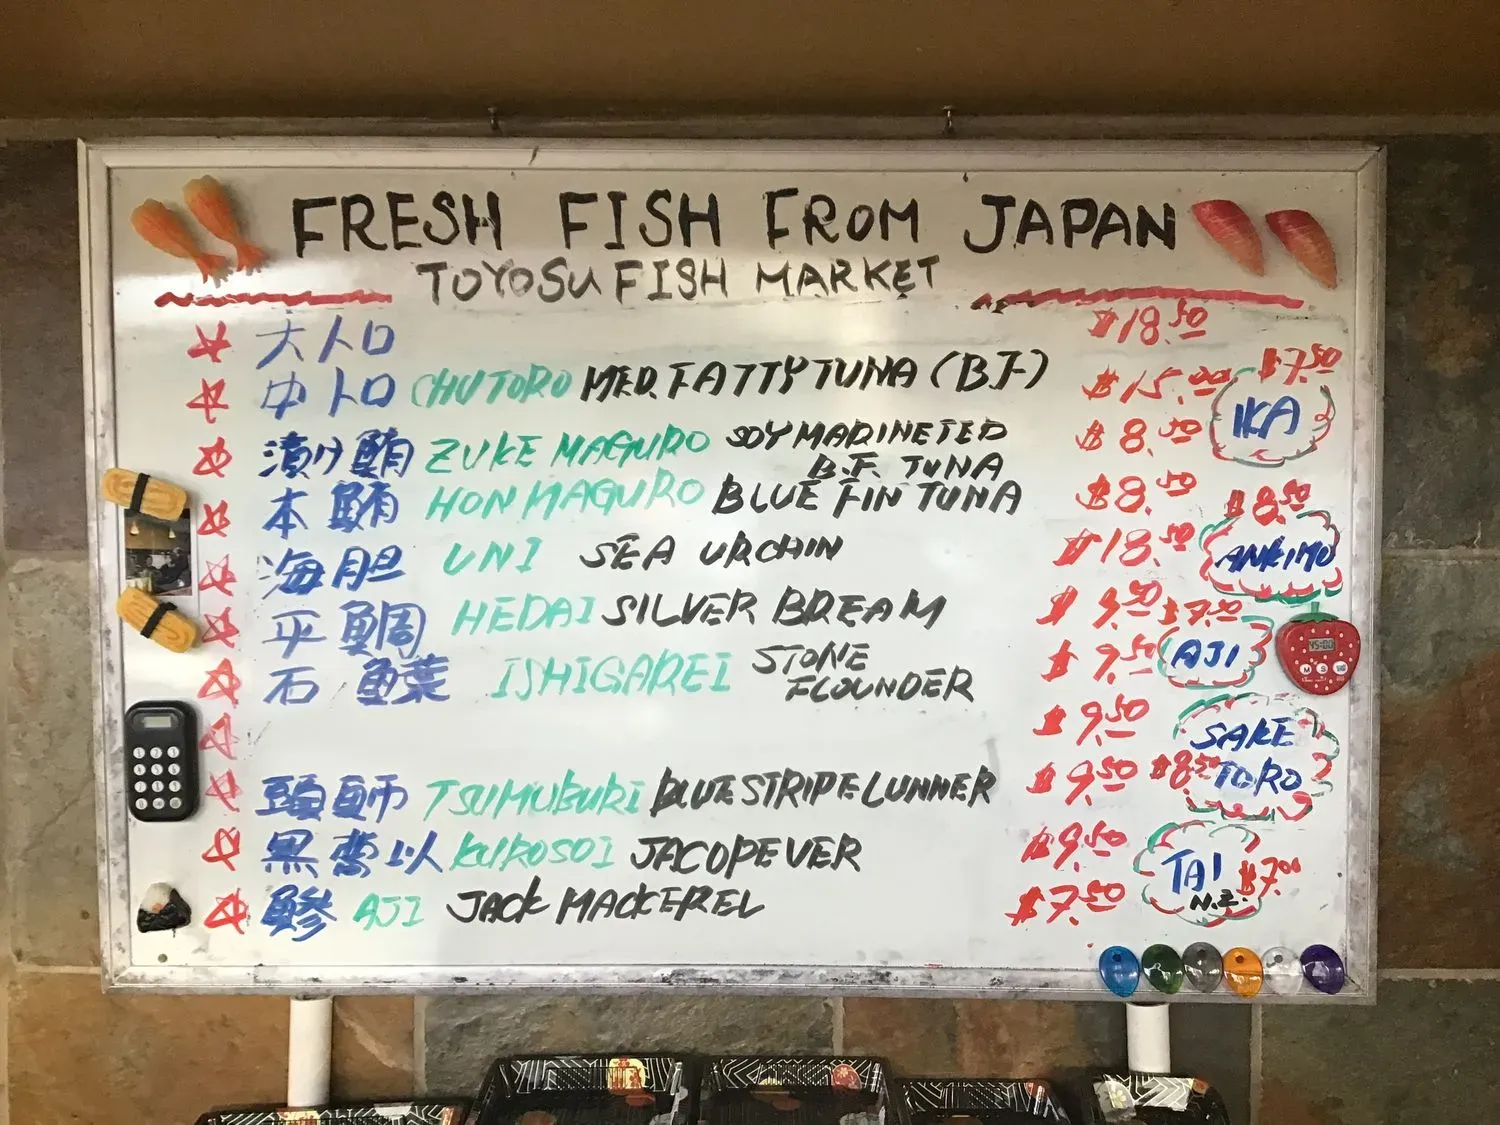 FRESH FISH FROM JAPAN
TOYOSU FISH MARKET
大トロ $18.50
中トロ CHUTORO MED. FATTY TUNA (B.F.) $15.00
漬け鮪 ZUKE MAGURO SOY MARINETED B.F. TUNA $8.50
本鮪 HON MAGURO BLUE FIN TUNA $8.50
海胆 UNI SEA URCHIN $18.50
平鯛 HEDAI SILVER BREAM $9.50
石鰈 ISHIGAREI STONE FLOUNDER $9.50
$9.50
頭師 TSUMUBURI BLUE STRIPE LUNNER $9.50
黒曹以 KUROSOI JACOPEVER $9.50
鰺 AJI JACK MACKEREL $7.50
$7.50
IKA
$8.50
ANKIMO
$7.50
AJI
SAKE
$8.50 TORO
TAI $7.00
N.Z.
45:00
M S